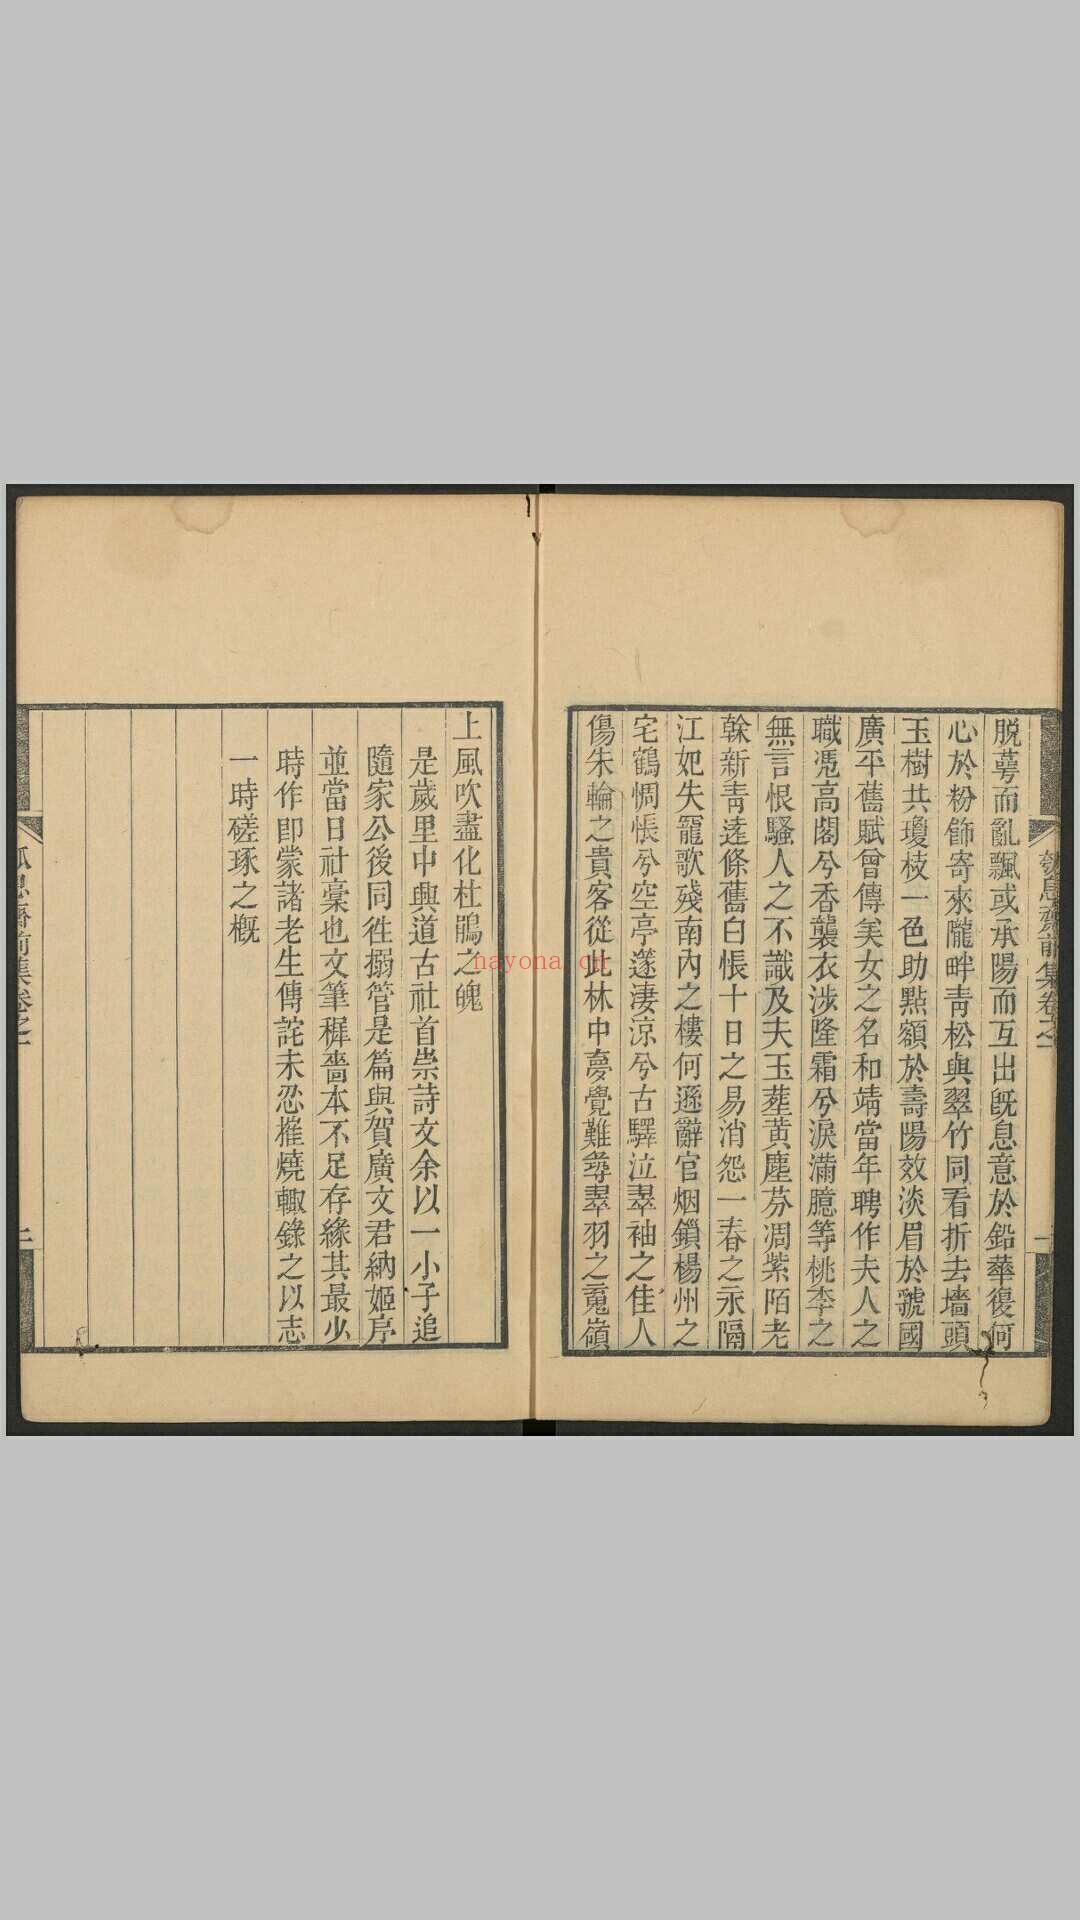 脱萼而亂飄或承陽而互出旣息意於鉛華復何
心於粉飾寄來隴畔青松與翠竹同看折去墻頭
玉樹共瓊枝一色助點額於壽陽效淡眉於虢國
廣平舊賦曾傳美女之名和靖當年聘作夫人之
職凴高閣兮香襲衣涉隆霜兮淚滿臆等桃李之
無言恨騷人之不識及夫玉薤黃塵芬凋紫陌老
榦新青逵條舊白悵十日之易消怨一春之永隔
江妃失寵歌殘南內之樓何遜辭官烟鎖楊州之
宅鶴惆悵兮空亭邃淒涼兮古驛泣翠袖之佳人
傷朱輪之貴客從此林中夢覺難尋翠羽之䰟嶺
上風吹盡化杜鵑之魄
是歲里中興道古社首崇詩文余以一小子追
隨家公後同徃搦管是篇與賀廣文君納姬序
並當日社稾也文筆穉嗇本不足存緣其最少
時作卽蒙諸老生傳詫未忍摧燒輙錄之以志
一時磋琢之槪
思齋前集卷之
nayona.cn